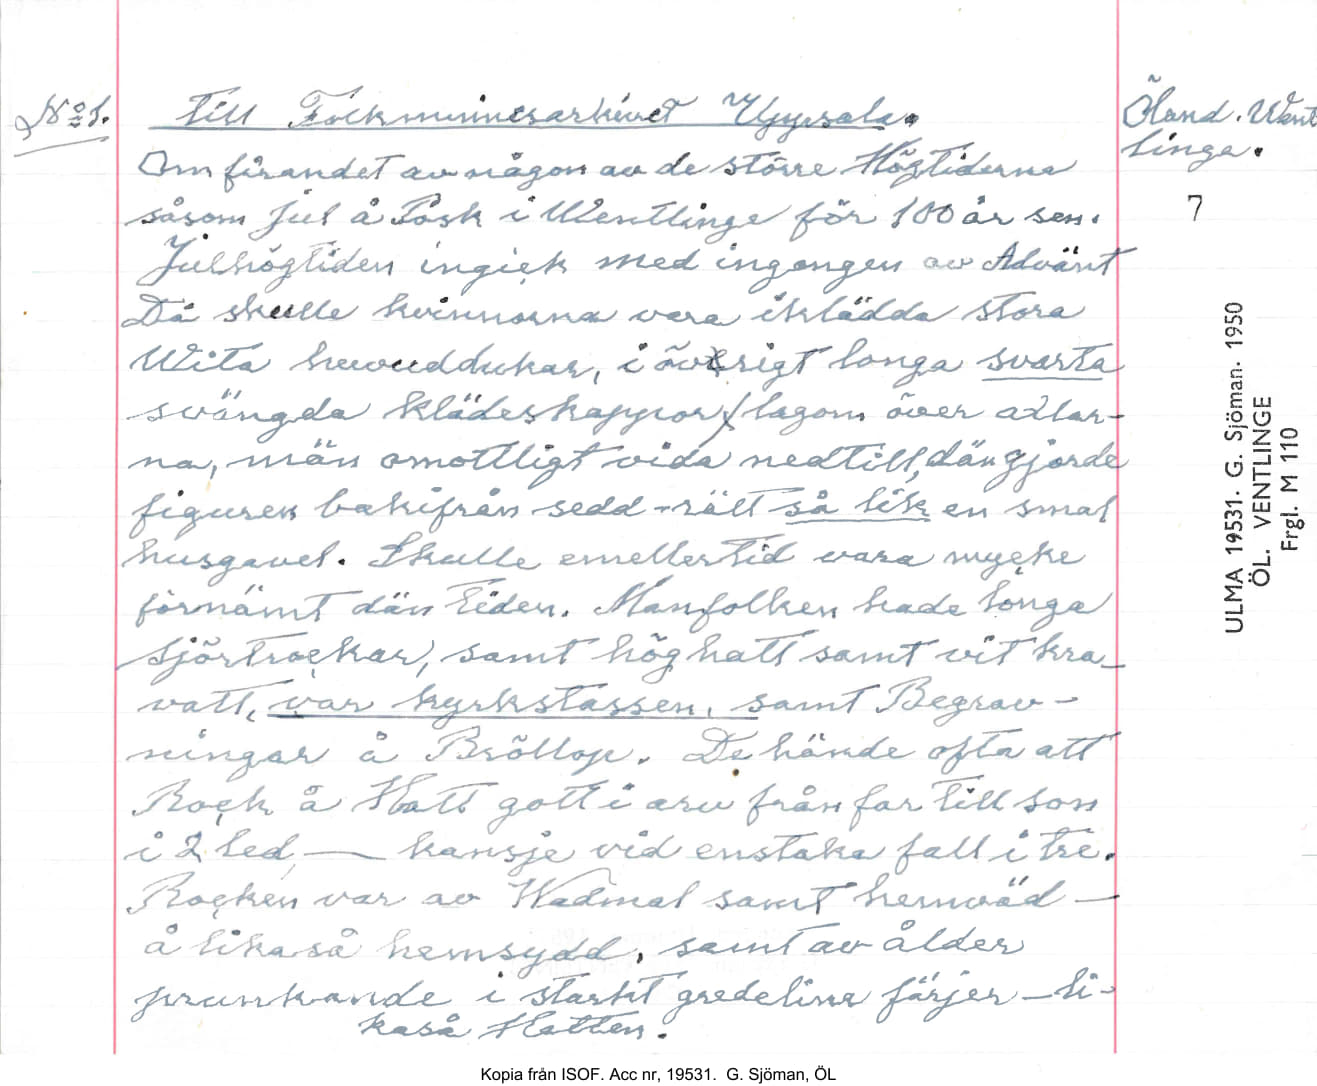 No 1.
Till Folkminnesarkivet Uppsala.
Öland. Vent
linge.
7
Om firandet av någon av de större Högtiderna
såsom Jul å Påsk i Wentlinge för 100 år sen.
Julhögtiden ingick med ingongen av Advänt
Då skulle kvinnorna vara iklädda stora
Wita huvuddukar, i övrigt longa svarta
svängda klädeskappor/lagom över axlar-
na, män omottligt vida nedtill, dän gjorde
figuren bakifrån sedd - rätt så lik en smal
husgavel. Skulle emellertid vara mycke
förnämt dän tiden. Manfolken hade longa
Sjörtrockar, samt hög hatt samt vit kra_
vatt, var kyrkstassen, samt Begrav-
ningar å Bröllop. De hände ofta att
Rock å Hatt gott i arv från far till son
i 2 led, — kansje vid enstaka fall i tre.
Rocken var av Wadmal samt hemväd —
å likaså hemsydd, samt av ålder
prunkande i starkt gredelina färjer - li-
kaså Hatten.
ULMA 19531. G. Sjöman. 1950
ÖL. VENTLINGE
Frgl. M 110
Kopia från ISOF. Acc nr, 19531. G. Sjöman, ÖL